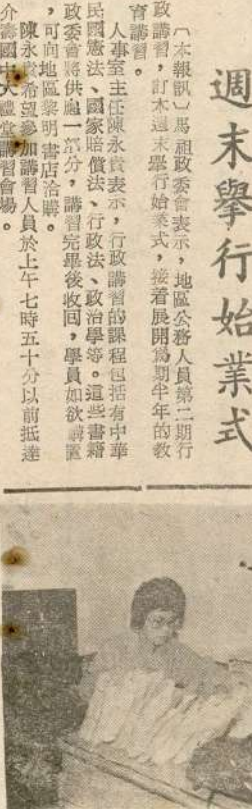 週末舉行始業式
〔本報訊〕馬祖政委會表示，地區公務人員第二期行
政講習，訂本週末舉行始業式，接着展開為期半年的教
育講習。
人事室主任陳永貴表示，行政講習的課程包括有中華
民國憲法、國家賠償法、行政法、政治學等。這些書籍
政委會將供應一部分，講習完畢後收回，學員如欲購置
，可向地區黎明書店洽購。
陳永貴希望參加講習人員於上午七時五十分以前抵達
介壽國中大禮堂講習會場。